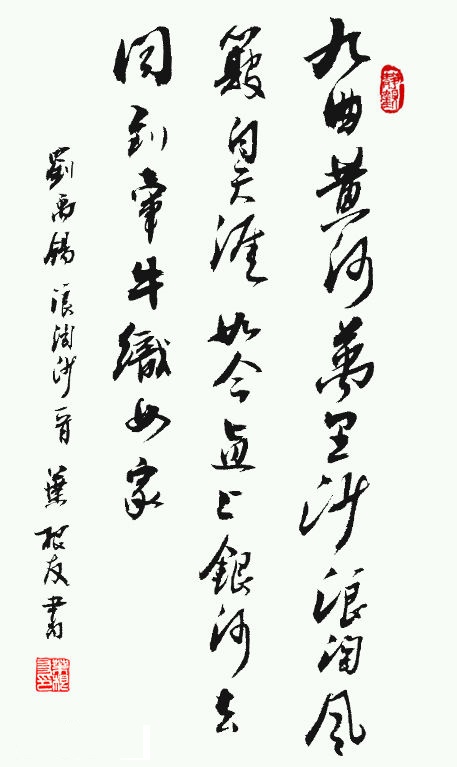 九曲黄河萬里沙浪淘風
簸自天涯如今直上銀河去
同到牽牛織女家
劉禹錫浪淘沙一首葉根友書